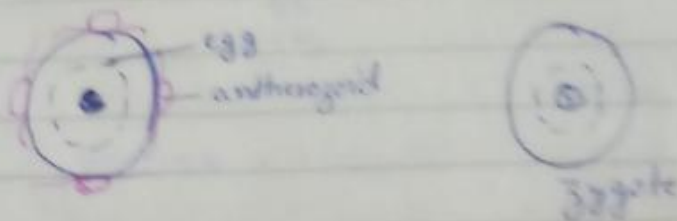 egg
antherozoid
Zygote